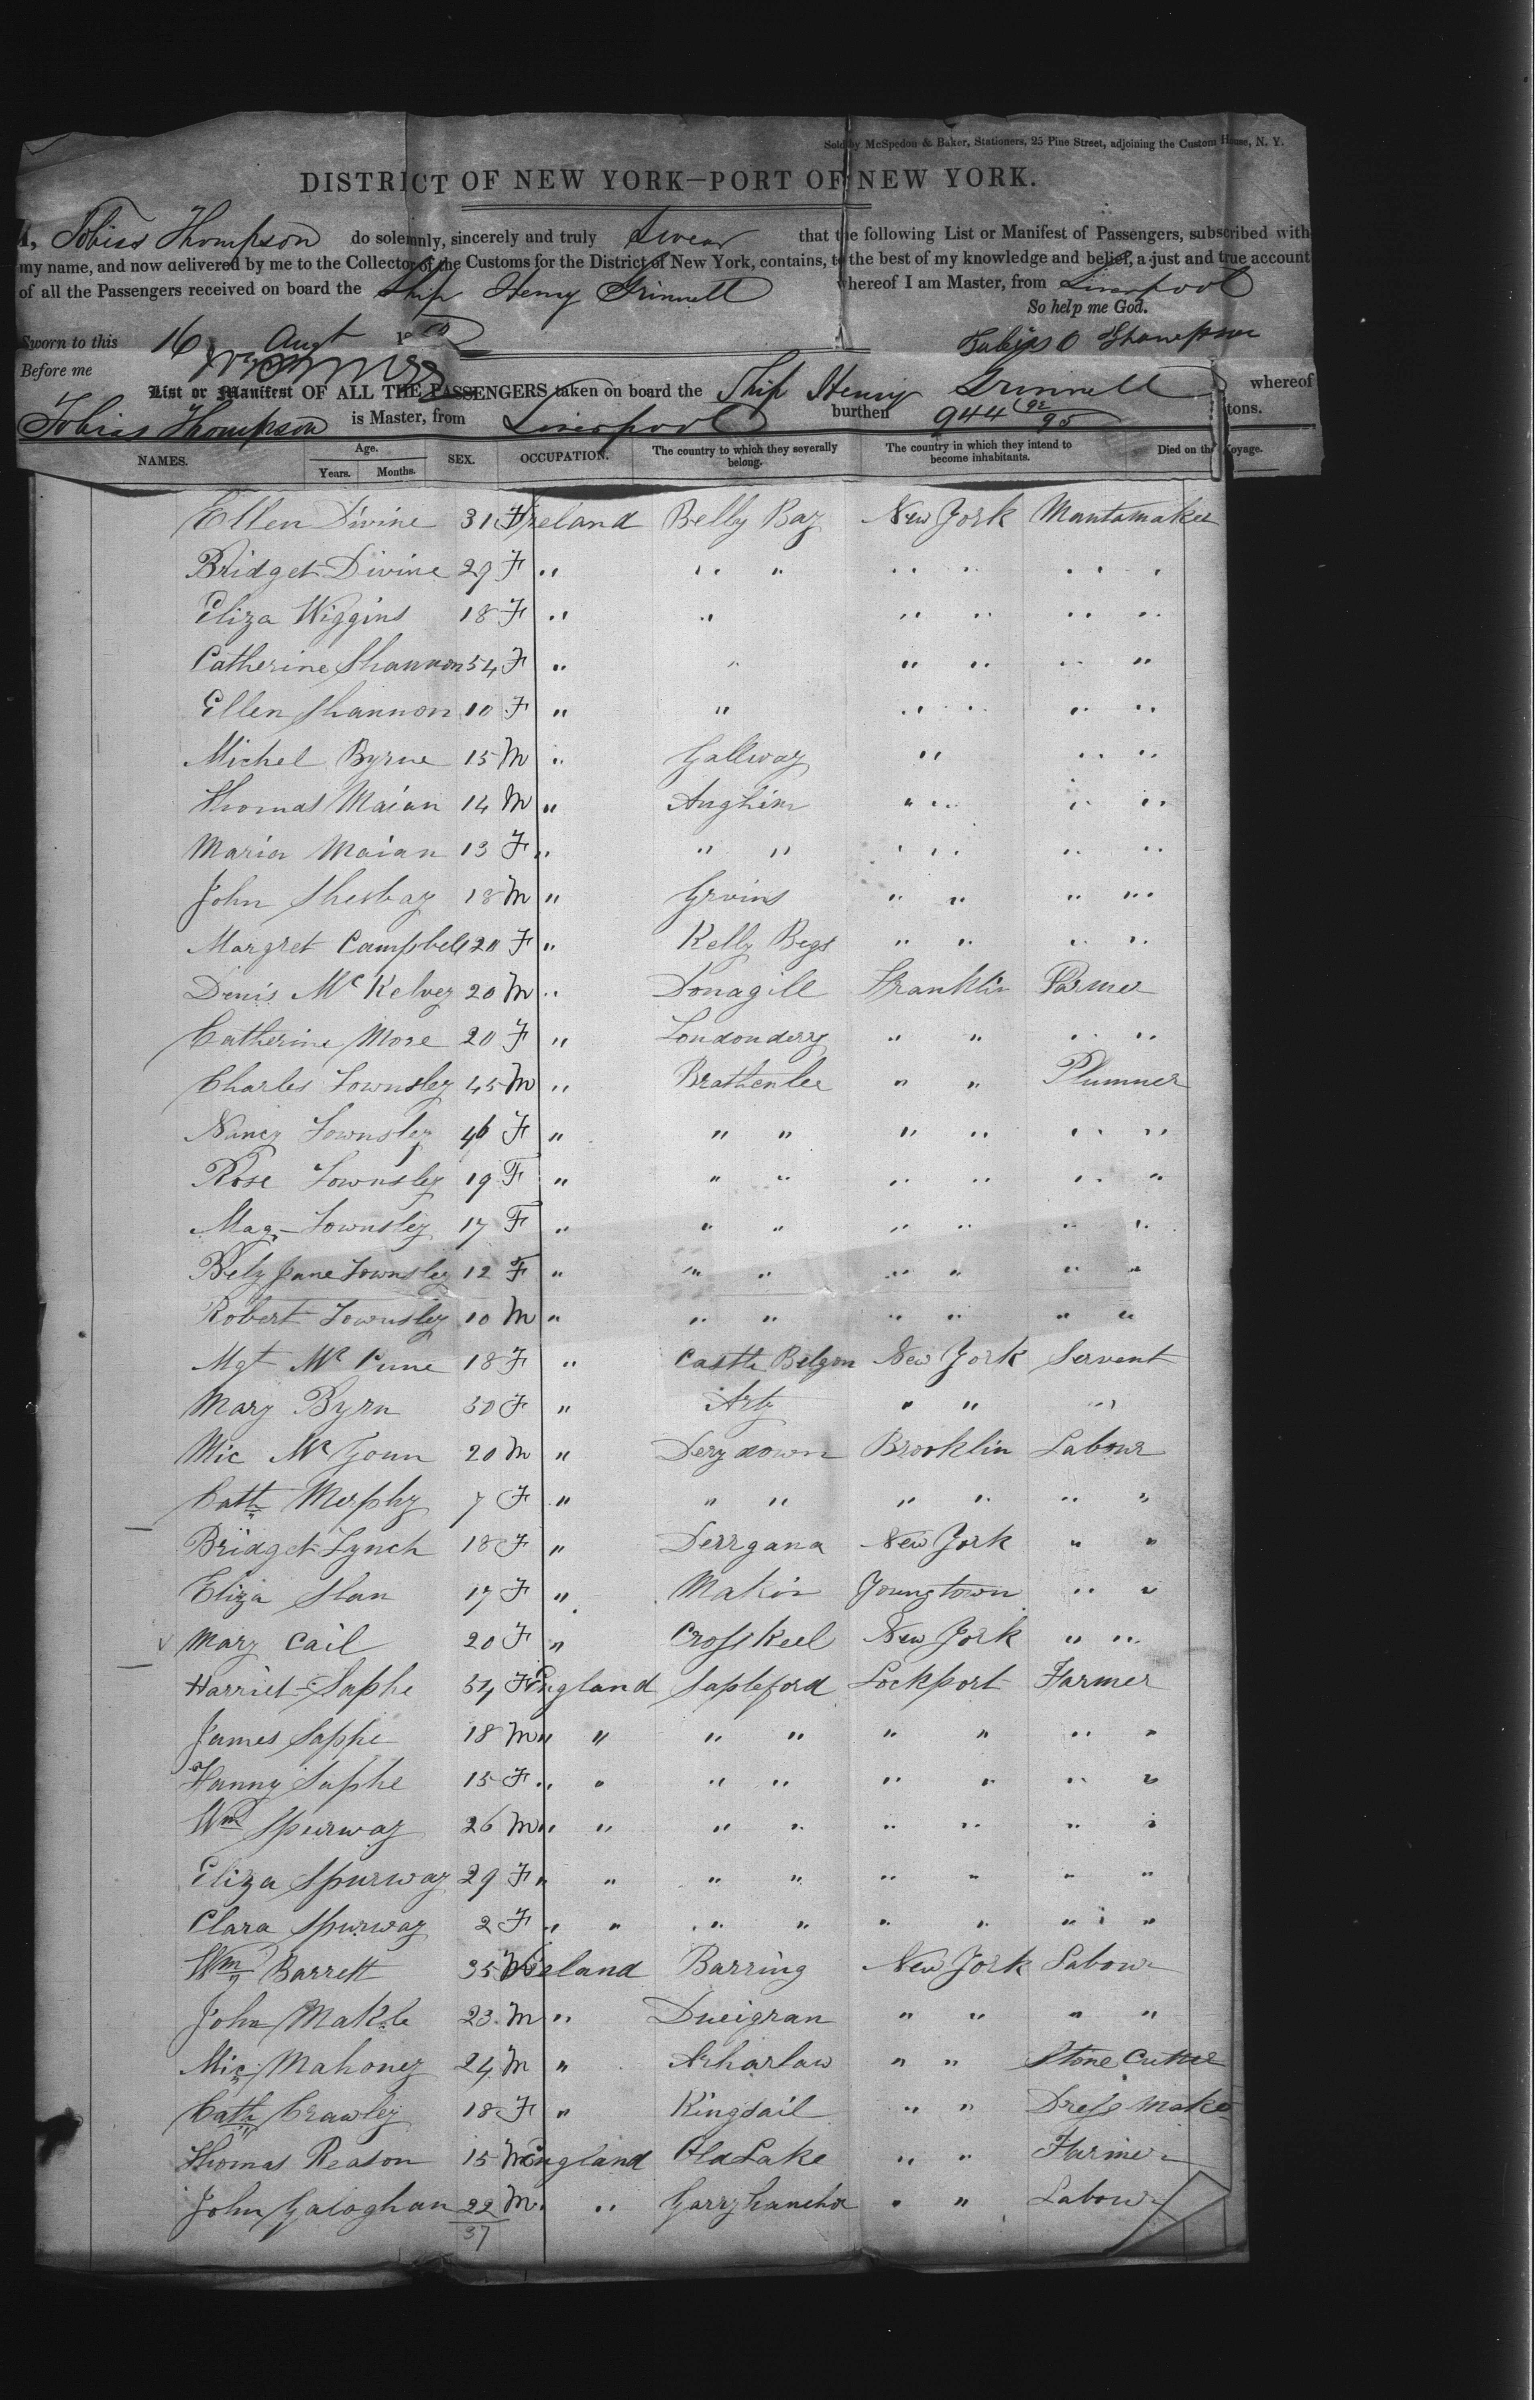 Sold by McSpedon & Baker, Stationers, 25 Pine Street, adjoining the Custom House, N. Y.
DISTRICT OF NEW YORK—PORT OF NEW YORK.
I, Tobias Thompson do solemnly, sincerely and truly swear that the following List or Manifest of Passengers, subscribed with
my name, and now delivered by me to the Collector of the Customs for the District of New York, contains, to the best of my knowledge and belief, a just and true account
of all the Passengers received on board the Ship Henry Grinnell whereof I am Master, from Liverpool
So help me God.
Sworn to this 16 Augt
Before me
List or Manifest OF ALL THE PASSENGERS taken on board the Ship Henry Grinnell whereof
Tobias Thompson is Master, from Liverpool burthen 944 92/95 tons.
NAMES. Age. Years. Months. SEX. OCCUPATION. The country to which they severally belong. The country in which they intend to become inhabitants. Died on the Voyage.
Ellen Divine 31 F Ireland Belly Bay New York Mantamaker
Bridget Divine 29 F " " " " " " "
Eliza Wiggins 18 F " " " " " "
Catherine Shannon 54 F " " " " " "
Ellen Shannon 10 F " " " " " "
Michel Byrne 15 M " Gallway " " "
Thomas Maian 14 M " Aughim " " " "
Maria Maian 13 F " " " " " " "
John 18 M " Grvins " " " "
Margret Campbell 20 F " Kelly Begs " " " "
Denis Mc Kelvey 20 M " Donagill Franklin Farmer
Catherine More 20 F " Londonderry " " " "
Charles Townsley 45 M " Brathenlee " " Plummer
Nancy Townsley 46 F " " " " " " "
Rose Townsley 19 F " " " " " " "
Mag. Townsley 17 F " " " " " " "
Bety Jane Townsley 12 F " " " " " " "
Robert Townsley 10 M " " " " " " "
Mgt Mc Cune 18 F " Castle Belgon New York Servent
Mary Byrn 30 F " " " "
Mic Mc Goun 20 M " Derydown Brooklin Labour
Cath Merphy 7 F " " " " " " "
Bridget Lynch 18 F " Derrgana New York " "
Eliza Slan 17 F " Makin Youngtown " "
Mary Cail 20 F " Cross Keel New York " "
Harriet Saphe 54 F England Sapleford Lockport Farmer
James Saphe 18 M " " " " " " " "
Fanny Saphe 15 F " " " " " " " "
Wm Spurway 26 M " " " " " " " "
Eliza Spurway 29 F " " " " " " " "
Clara Spurway 2 F " " " " " " " "
Wm Barrett 35 M Ireland Barring New York Labour
John 23 M " Dueigran " " " "
Mic. Mahoney 24 M " Arharlaw " " Stone Cutter
Cath Crawley 18 F " Kingsail " " Dress Maker
Thomas Reason 15 M England Old Lake " " Farmer
John Galoghan 22 M " " " " Labour
37